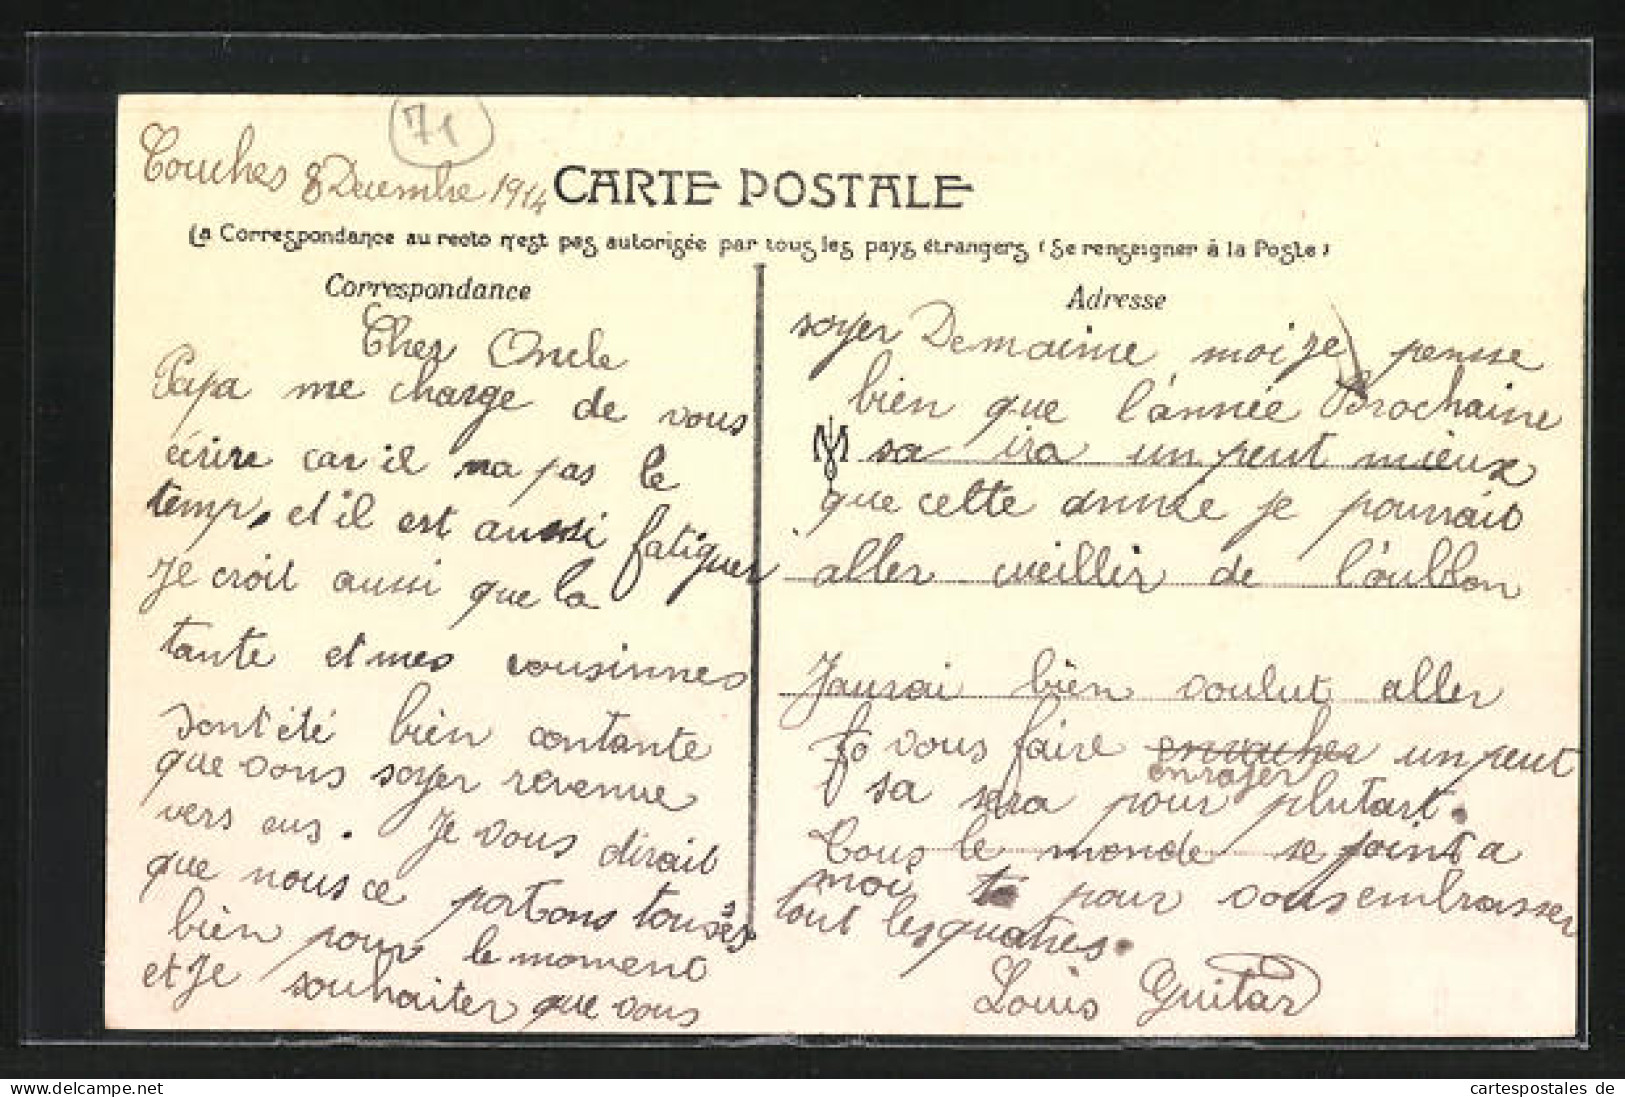 71
Touches 8 Decembre 1914
CARTE POSTALE
La Correspondance au recto n'est pas autorisée par tous les pays étrangers (Se renseigner à la Poste)
Correspondance
Cher Oncle
Papa me charge de vous
écrire car il na pas le
temp, et il est aussi fatiguer
Je croit aussi que la
tante et mes cousinnes
sont été bien contante
que vous soyer revenue
vers eus. Je vous dirait
que nous ce portons tous
bien pour le moment
et Je souhaiter que vous
Adresse
soyer De maime moi je pensse
bien que l'année Prochaine
sa ira un peut mieux
que cette année je pourrait
aller cueillir de l'oublon
Jaurai bien voulut aller
vous faire un peut
enrager
sa sera pour plutart.
Tous le monde se joint a
moi pour vous embrasser
tout les quatres.
Louis Guitar
cartespostales de